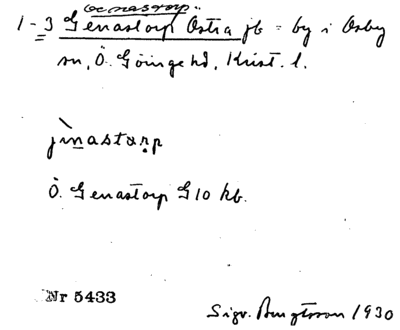 Genastorp
1-3 Genastorp Östra jb = by i Osby
sn, Ö. Göinge hd, Krist. l.
jìnastarp
Ö. Genastorp G10 kb.
Nr 5433
Sigv. Bengtsson 1930